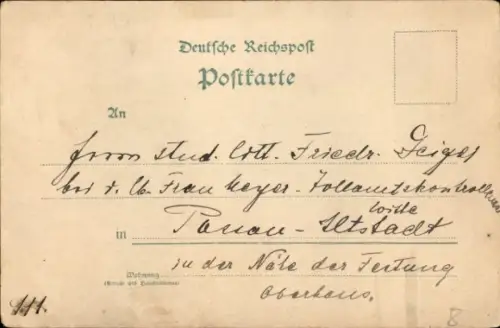 Deutsche Reichspost
Postkarte
An
Herrn stud. Friedr. Geiger
bei Frau Meyer - Zollamtskontrolleurs
witwe
in Passau - Ilstadt
in der Nähe der Festung
Wohnung
Oberhaus.
111.
8